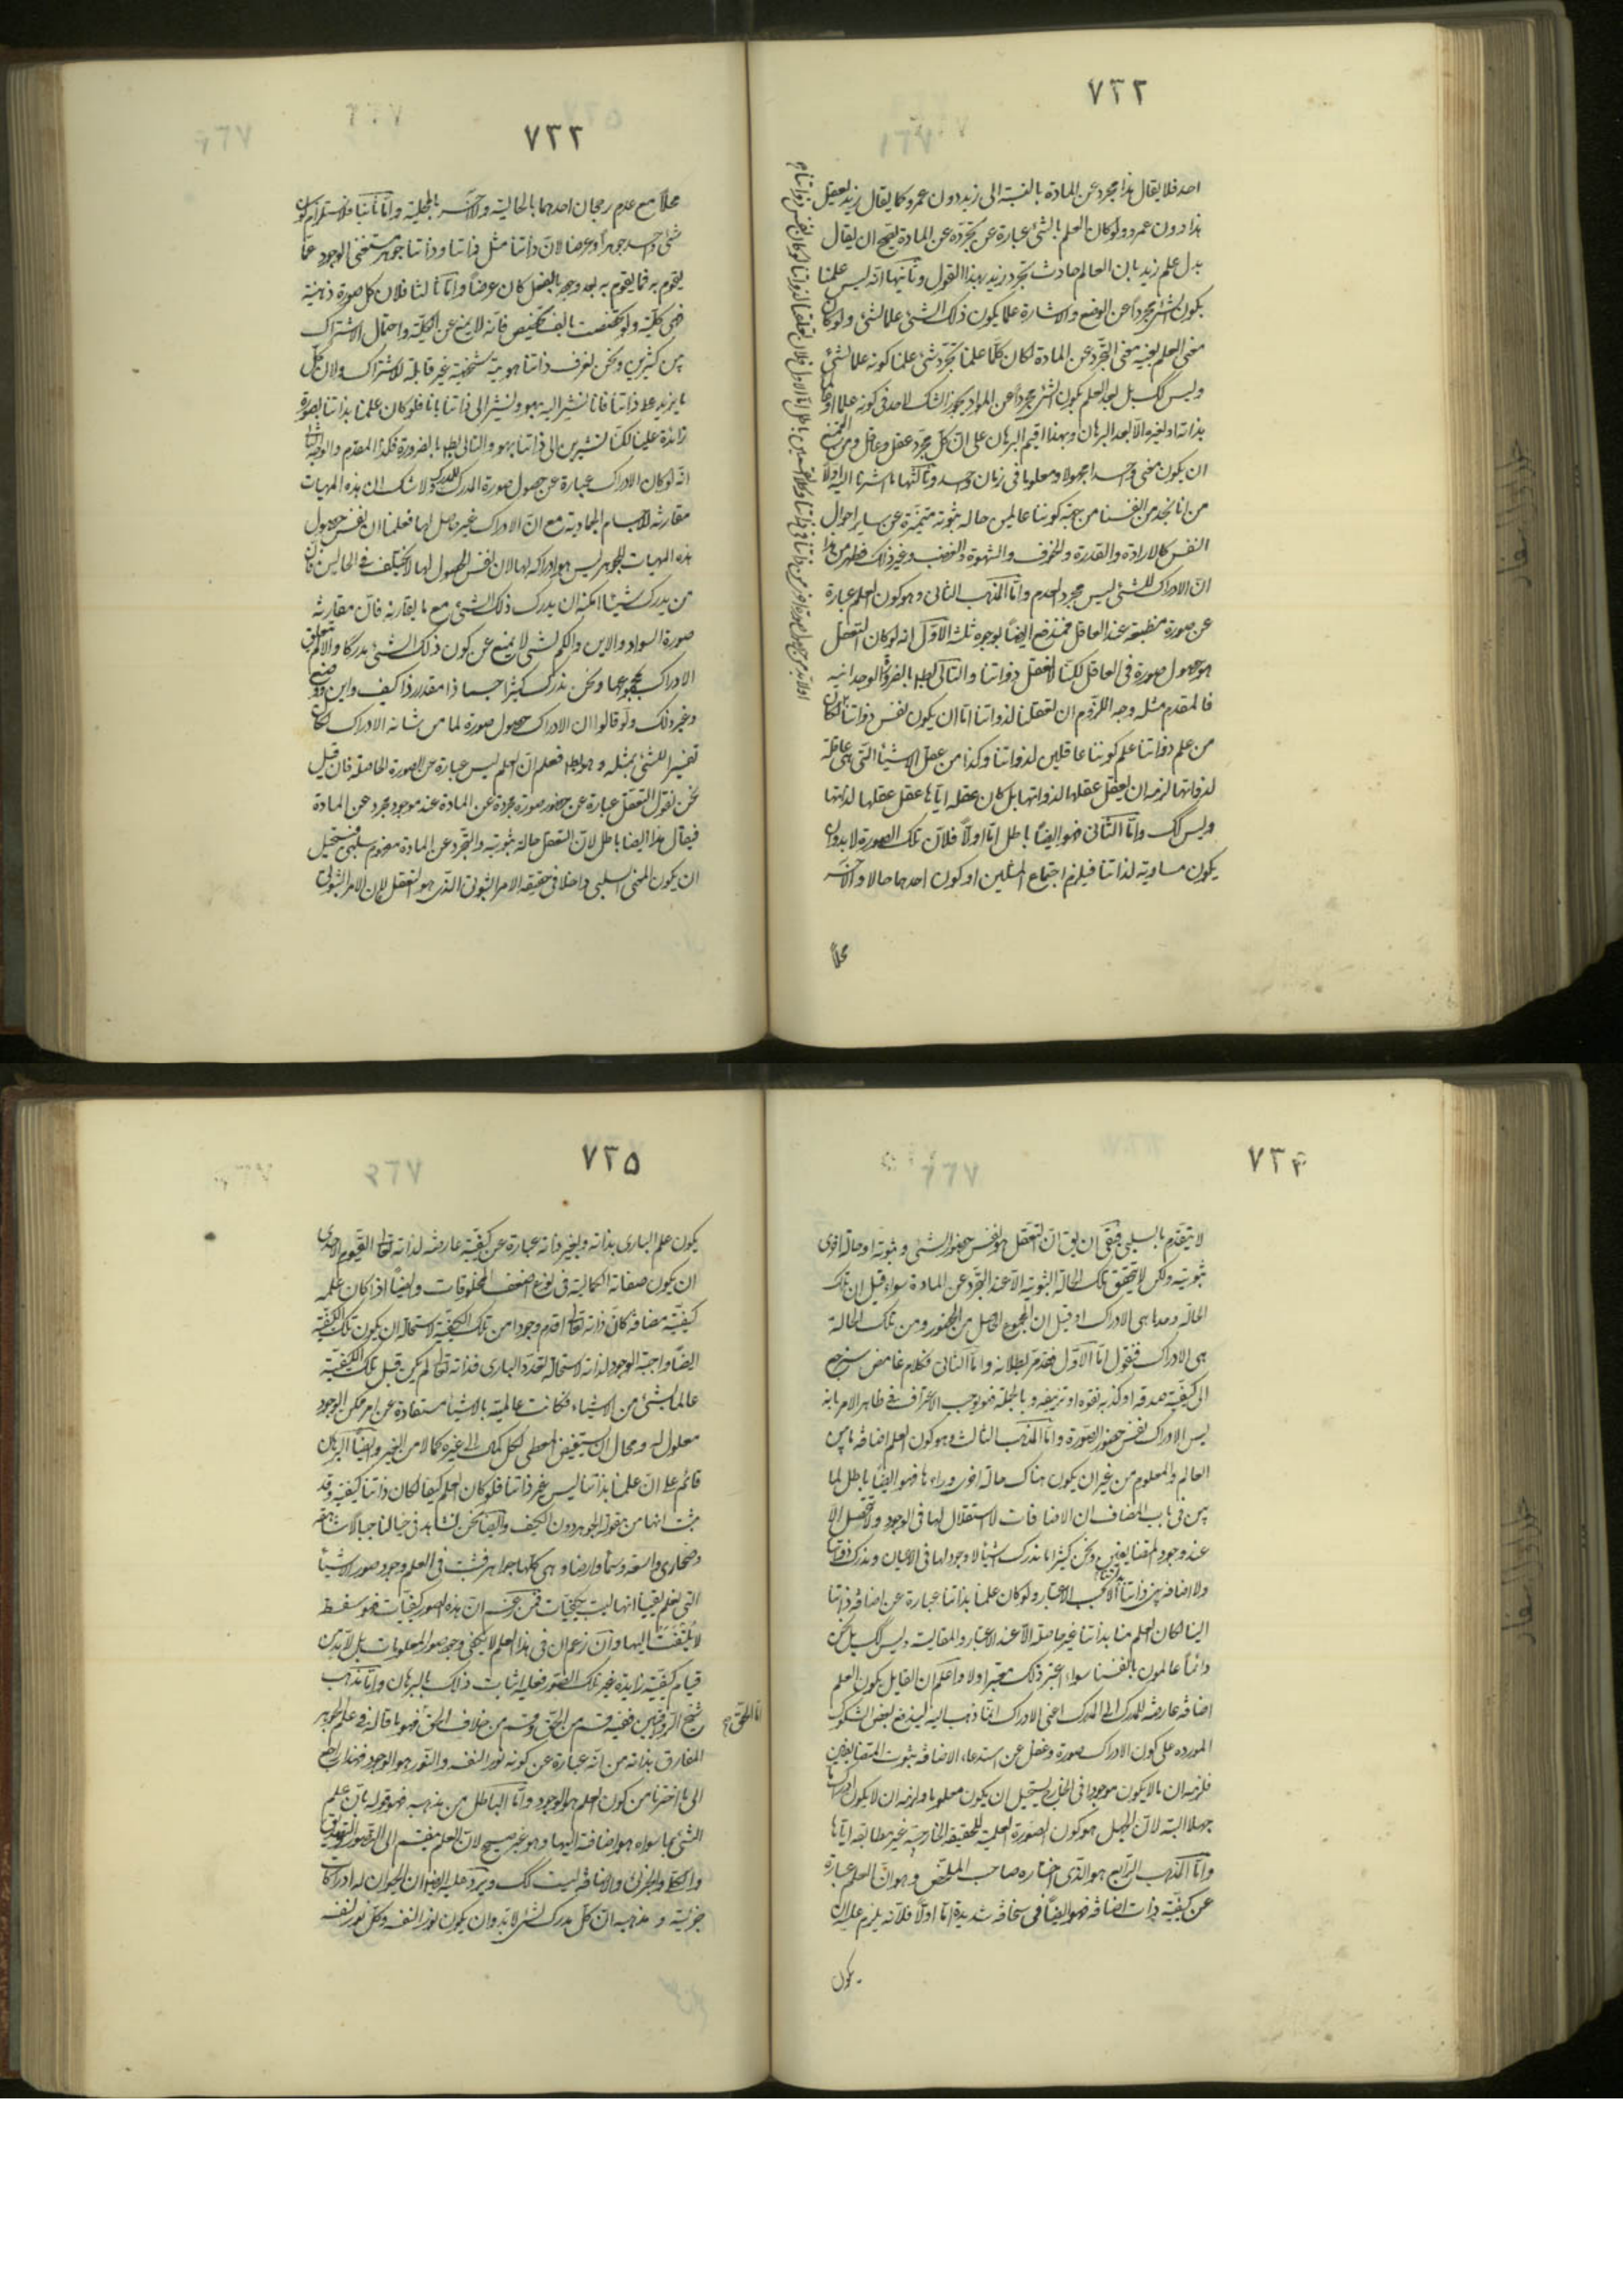 ٧٣٢
احد فلا يقال هذا مجرد عن المادة بالنسبة الى زيد دون عمرو كما يقال زيد يعقل
هذا دون عمرو ولو كان العلم بالشئ عبارة عن تجرّده عن المادة لصح ان يقال
بدل علم زيد بان العالم حادث تجرد زيد بهذا القول وثانيها انّه ليس علمنا
بكون الشئ مجرداً عن الوضع والاشارة علما بكون ذلك الشئ علما لشئ ولو كان
معنى العلم بعينه معنى التجّرد عن المادة لكان كلّما علمنا تجرّد شئ علمنا كونه علما لشئ
وليس كك بل بعد العلم بكون الشئ مجرداً عن المواد يجوز الشك لاحد فى كونه علما او عالما
بذاته او لغيره الّا بعد البرهان وبهذا اقيم البرهان على انّ كلّ مجرّد عقل وعاقل ومن الممتنع
ان يكون معنى واحد مجهولا ومعلوما فى زمان واحد وثالثها ما اشرنا اليه اوّلا
من انا نجد من انفسنا من جهة كوننا عالمين حالة ثبوتية متميّزة عن ساير احوال
النفس كالارادة والقدرة والخوف والشهوة والغضب وغير ذلك فظهر من هذا
انّ الادراك للشئ ليس مجرد العدم وامّا المذهب الثانى وهو كون العلم عبارة
عن صورة منطبعة عند العاقل فمندفع ايضاً بوجوه ثلثة الاوّل انه لو كان التعقّل
هو حصول صورة فى العاقل لكنّا لا نعقل ذواتنا والتالى بط بالضرورة الوجدانية
فالمقدم مثله وجه اللزوم ان تعقلنا لذواتنا امّا ان يكون نفس ذواتنا
من علم ذواتنا علم كوننا عاقلين لذواتنا وكذا من عقل الاشياء التّى هى عاقلة
لذواتها لزمه ان يعقل عقلها لذواتها بل كان عقله ايّاها عقل عقلها لذاتها
وليس كك وامّا الثانى فهو ايضاً باطل امّا اولاً فلانّ تلك الصورة لا بد وان
يكون مساوية لذاتنا فيلزم اجتماع المثلين او كون احدهما حالا والآخر
محلّاً
٧٣٣
محلّاً مع عدم رجحان احدهما بالحالية والآخر بالمحلية وامّا ثانيا فلاستلزام كون
شئ واحد جوهراً وعرضا لانّ ذاتنا مثل ذاتنا وذاتنا جوهر مستغنى الوجود عمّا
يقوم به فما يقوم به بعد وجوده بالفعل كان عرضاً وامّا ثالثا فلان كل صورة ذهنية
فهى كليّة ولو تخصّصت بالف تخصيص فانّه لا يمنع عن الكليّة واحتمال الاشتراك
بين كثيرين ونحن نعرف ذاتنا هوية شخصيّة غير قابلة للاشتراك ولان كلّ
ما يزيد على ذاتنا فانا نشير اليه بهو ونشير الى ذاتنا بانا فلو كان علمنا بذاتنا بصورة
زائدة علينا لكنّا نشير بين الى ذاتنا بهو والتالى بط بالضرورة فكذا المقدم والوجه
انّه لو كان الادراك عبارة عن حصول صورة المدرك للمدرك ولا شك ان هذه المهيات
مقارنة للاجسام الجمادية مع انّ الادراك غير حاصل لها فعلمنا ان نفس حصول
هذه المهيات للجوهر ليس هو ادراكه لها لان نفس الحصول لها لا يختلف فى الحالين فان
من يدرك شيئا امكنه ان يدرك ذلك الشئ مع ما يقارنه فانّ مقارنة
صورة السواد والاين والكم لشئ لا يمنع عن كون ذلك الشئ مدركا
الادراك بمجموعها ونحن ندرك كثيرا جسما ذا مقدر ذا كيف واين ووضع
وغير ذلك ولو قالوا ان الادراك حصول صورة لما من شانه الادراك لكان
تفسيرا للشئ بمثله وهو بط فعلم انّ العلم ليس عبارة عن الصورة الحاصلة فان قيل
نحن نقول التعقّل عبارة عن حضور صورة مجردة عن المادة عند موجود مجرد عن المادة
فيقال هذا ايضا باطل لانّ التعقل حالة ثبوتية والتجّرد عن المادة مفهوم سلبى فيستحيل
ان يكون المعنى السلبى داخلا فى حقيقة الامر الثبوتى الذى هو التعقل لان الامر الثبوتى
٧٣٤
لا يتقدّم بالسلبى فبقى ان يق انّ التعقّل هو نفس حضور الشئ وثبوته او حالة اخرى
ثبوتية ولكن لا يتحقّق تلك الحالة الثبوتية الّا عند التجّرد عن المادة سواء قيل ان تلك
الحالة وحدها هى الادراك او قيل ان المجموع الحاصل من الحضور ومن تلك الحالة
هى الادراك فنقول امّا الاوّل فقد مرّ بطلانه وامّا الثانى فكلام غامض سنرجع
الى كيفيّة صدقه او كذبه نقوه او نزيفه وبالجملة فهو يوجب الاعتراف فى ظاهر الامر بانه
ليس الادراك نفس حضور الصّورة وامّا المذهب الثالث وهو كون العلم اضافة ما بين
العالم والمعلوم من غير ان يكون هناك حالة اخرى وراءها فهو ايضاً باطل لما
بين فى باب المضاف ان الاضافات لا استقلال لها فى الوجود ولا تتحصل الّا
عند وجود المتضايفين ونحن كثيرا ما ندرك اشيا لا وجود لها فى الاعيان وندرك ذواتنا
ولا اضافة بين ذاتنا وذاتنا الّا بحسب الاعتبار ولو كان علمنا بذاتنا عبارة عن اضافة ذاتنا
الينا لكان العلم منا بذاتنا غير حاصلة الّا عند الاعتبار والمقايسة وليس كك بل نحن
دائماً عالمون بانفسنا سواء اعتبر ذلك معتبر او لا واعلم ان القايل بكون العلم
اضافة عارضة للمدرك الى المدرك اعنى الادراك انّما ذهب اليه ليندفع بعض الشكوك
المورده على كون الادراك صورة وغفل عن استدعاء الاضافة ثبوت المتضايفين
فلزمه ان ما لا يكون موجودا فى الخارج يستحيل ان يكون معلوما ولزمه ان لا يكون
جهلا البتة لانّ الجهل هو كون الصورة العلمية للحقيقة الخارجية غير مطابقة ايّاها
وامّا المذهب الرّابع هو الّذى اختاره صاحب الملخّص وهو انّ العلم عبارة
عن كيفيّة ذات اضافة فهو ايضاً فى سخافة شديدة امّا اولاً فلانّه يلزم عليه ان
يكون
٧٣٥
يكون علم البارى بذاته وبغير ذاته عبارة عن كيفية عارضة لذاته تعالى القيّوم الاحدى
ان يكون صفاته الكمالية فى نوع اضعف المخلوقات وايضاً اذا كان علمه
كيفيّة مضافة كان ذاته تعالى اقدم وجودا من تلك الكيفيّة لاستحالة ان يكون تلك الكيفيّة
ايضاً واجبة الوجود لذاته لاستحالة تعدّد البارى فذاته تعالى لم يكن قبل تلك الكيفيّة
عالما بشئ من الاشياء فكانت عالميته بالاشيا مستفادة عن امر ممكن الوجود
معلول له ومحال ان يستفيض المعطى لكل كمال الى غيره كمالا من الغير وايضاً البرهان
قائم على انّ علمنا بذاتنا ليس غير ذاتنا فلو كان العلم كيفا لكان ذاتنا كيفية وقد
ثبت انها من مقولة الجوهر دون الكيف وايضا نحن نشاهد فى خيالنا جبالا شاهقة
وصحارى واسعة وسماء وارضا وهى كلّها جواهر فثبت فى العلم وجود صور الاشيأ
التى نعلم يقيناً انها ليست بكيفيّات فمن زعم انّ هذه الصور كيفيّات فهو سفسط
لا يُلتَفت اليها وان زعم ان فى هذا العلم لا يكفى وجود صور المعلومات بل لا بد من
قيام كيفيّة زايدة غير تلك الصّور فعليه اثبات ذلك بالبرهان وامّا مذهب
شيخ الرّواقيين ففيه قسم من الحقّ وقسم من خلاف الحق فهو ما قاله فى علم الجوهر
المفارق بذاته من انّه عبارة عن كونه نورا لنفسه والنّور هو الوجود فهذا راجع
الى ما اخترنا من كون العلم هو الوجود وامّا الباطل من مذهبه فهو قوله بان علم
الشئ بما سواه هو اضافته اليها وهو غير صحيح لانّ العلم ينقسم الى التّصور والتصديق
والكلى والجزئى والاضافة ليست كك ويرد عليه ايضا ان الحيوان له ادراكات
جزئيّة ومذهبه انّ كلّ مدرك لشئ لا بد وان يكون نورا لنفسه وكلّ نور لنفسه